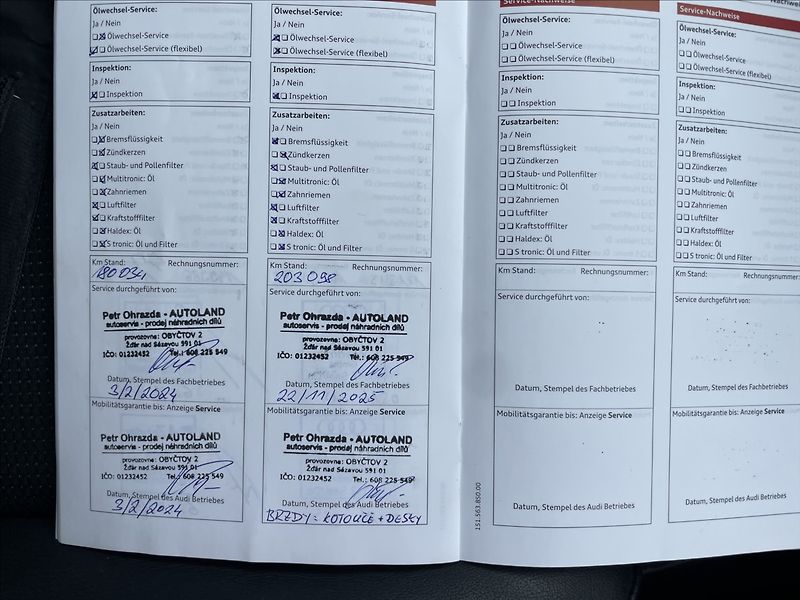 Ölwechsel-Service:
Ja / Nein
Ölwechsel-Service
Ölwechsel-Service (flexibel)
Inspektion:
Ja / Nein
Inspektion
Zusatzarbeiten:
Ja / Nein
Bremsflüssigkeit
Zündkerzen
Staub- und Pollenfilter
Multitronic: Öl
Zahnriemen
Luftfilter
Kraftstofffilter
Haldex: Öl
S tronic: Öl und Filter
Km Stand: Rechnungsnummer:
180034
Service durchgeführt von:
Petr Ohrazda - AUTOLAND
autoservis - prodej náhradních dílů
provozovna: OBYČTOV 2
Žďár nad Sázavou 591 01
IČO: 01232452 Tel.: 608 225 549
Datum, Stempel des Fachbetriebes
3/2/2024
Mobilitätsgarantie bis: Anzeige Service
Petr Ohrazda - AUTOLAND
autoservis - prodej náhradních dílů
provozovna: OBYČTOV 2
Žďár nad Sázavou 591 01
IČO: 01232452 Tel.: 608 225 549
Datum, Stempel des Audi Betriebes
3/2/2024
Ölwechsel-Service:
Ja / Nein
Ölwechsel-Service
Ölwechsel-Service (flexibel)
Inspektion:
Ja / Nein
Inspektion
Zusatzarbeiten:
Ja / Nein
Bremsflüssigkeit
Zündkerzen
Staub- und Pollenfilter
Multitronic: Öl
Zahnriemen
Luftfilter
Kraftstofffilter
Haldex: Öl
S tronic: Öl und Filter
Km Stand: Rechnungsnummer:
203 098
Service durchgeführt von:
Petr Ohrazda - AUTOLAND
autoservis - prodej náhradních dílů
provozovna: OBYČTOV 2
Žďár nad Sázavou 591 01
IČO: 01232452 Tel.: 608 225 549
Datum, Stempel des Fachbetriebes
22/11/2025
Mobilitätsgarantie bis: Anzeige Service
Petr Ohrazda - AUTOLAND
autoservis - prodej náhradních dílů
provozovna: OBYČTOV 2
Žďár nad Sázavou 591 01
IČO: 01232452 Tel.: 608 225 549
Datum, Stempel des Audi Betriebes
BRZDY: KOTOUČE + DESKY
151.563.850.00
Service-Nachweise
Ölwechsel-Service:
Ja / Nein
Ölwechsel-Service
Ölwechsel-Service (flexibel)
Inspektion:
Ja / Nein
Inspektion
Zusatzarbeiten:
Ja / Nein
Bremsflüssigkeit
Zündkerzen
Staub- und Pollenfilter
Multitronic: Öl
Zahnriemen
Luftfilter
Kraftstofffilter
Haldex: Öl
S tronic: Öl und Filter
Km Stand: Rechnungsnummer:
Service durchgeführt von:
Datum, Stempel des Fachbetriebes
Mobilitätsgarantie bis: Anzeige Service
Datum, Stempel des Audi Betriebes
Service-Nachweise
Ölwechsel-Service:
Ja / Nein
Ölwechsel-Service
Ölwechsel-Service (flexibel)
Inspektion:
Ja / Nein
Inspektion
Zusatzarbeiten:
Ja / Nein
Bremsflüssigkeit
Zündkerzen
Staub- und Pollenfilter
Multitronic: Öl
Zahnriemen
Luftfilter
Kraftstofffilter
Haldex: Öl
S tronic: Öl und Filter
Km Stand: Rechnungsnummer:
Service durchgeführt von:
Datum, Stempel des Fachbetriebes
Mobilitätsgarantie bis: Anzeige Service
Datum, Stempel des Audi Betriebes